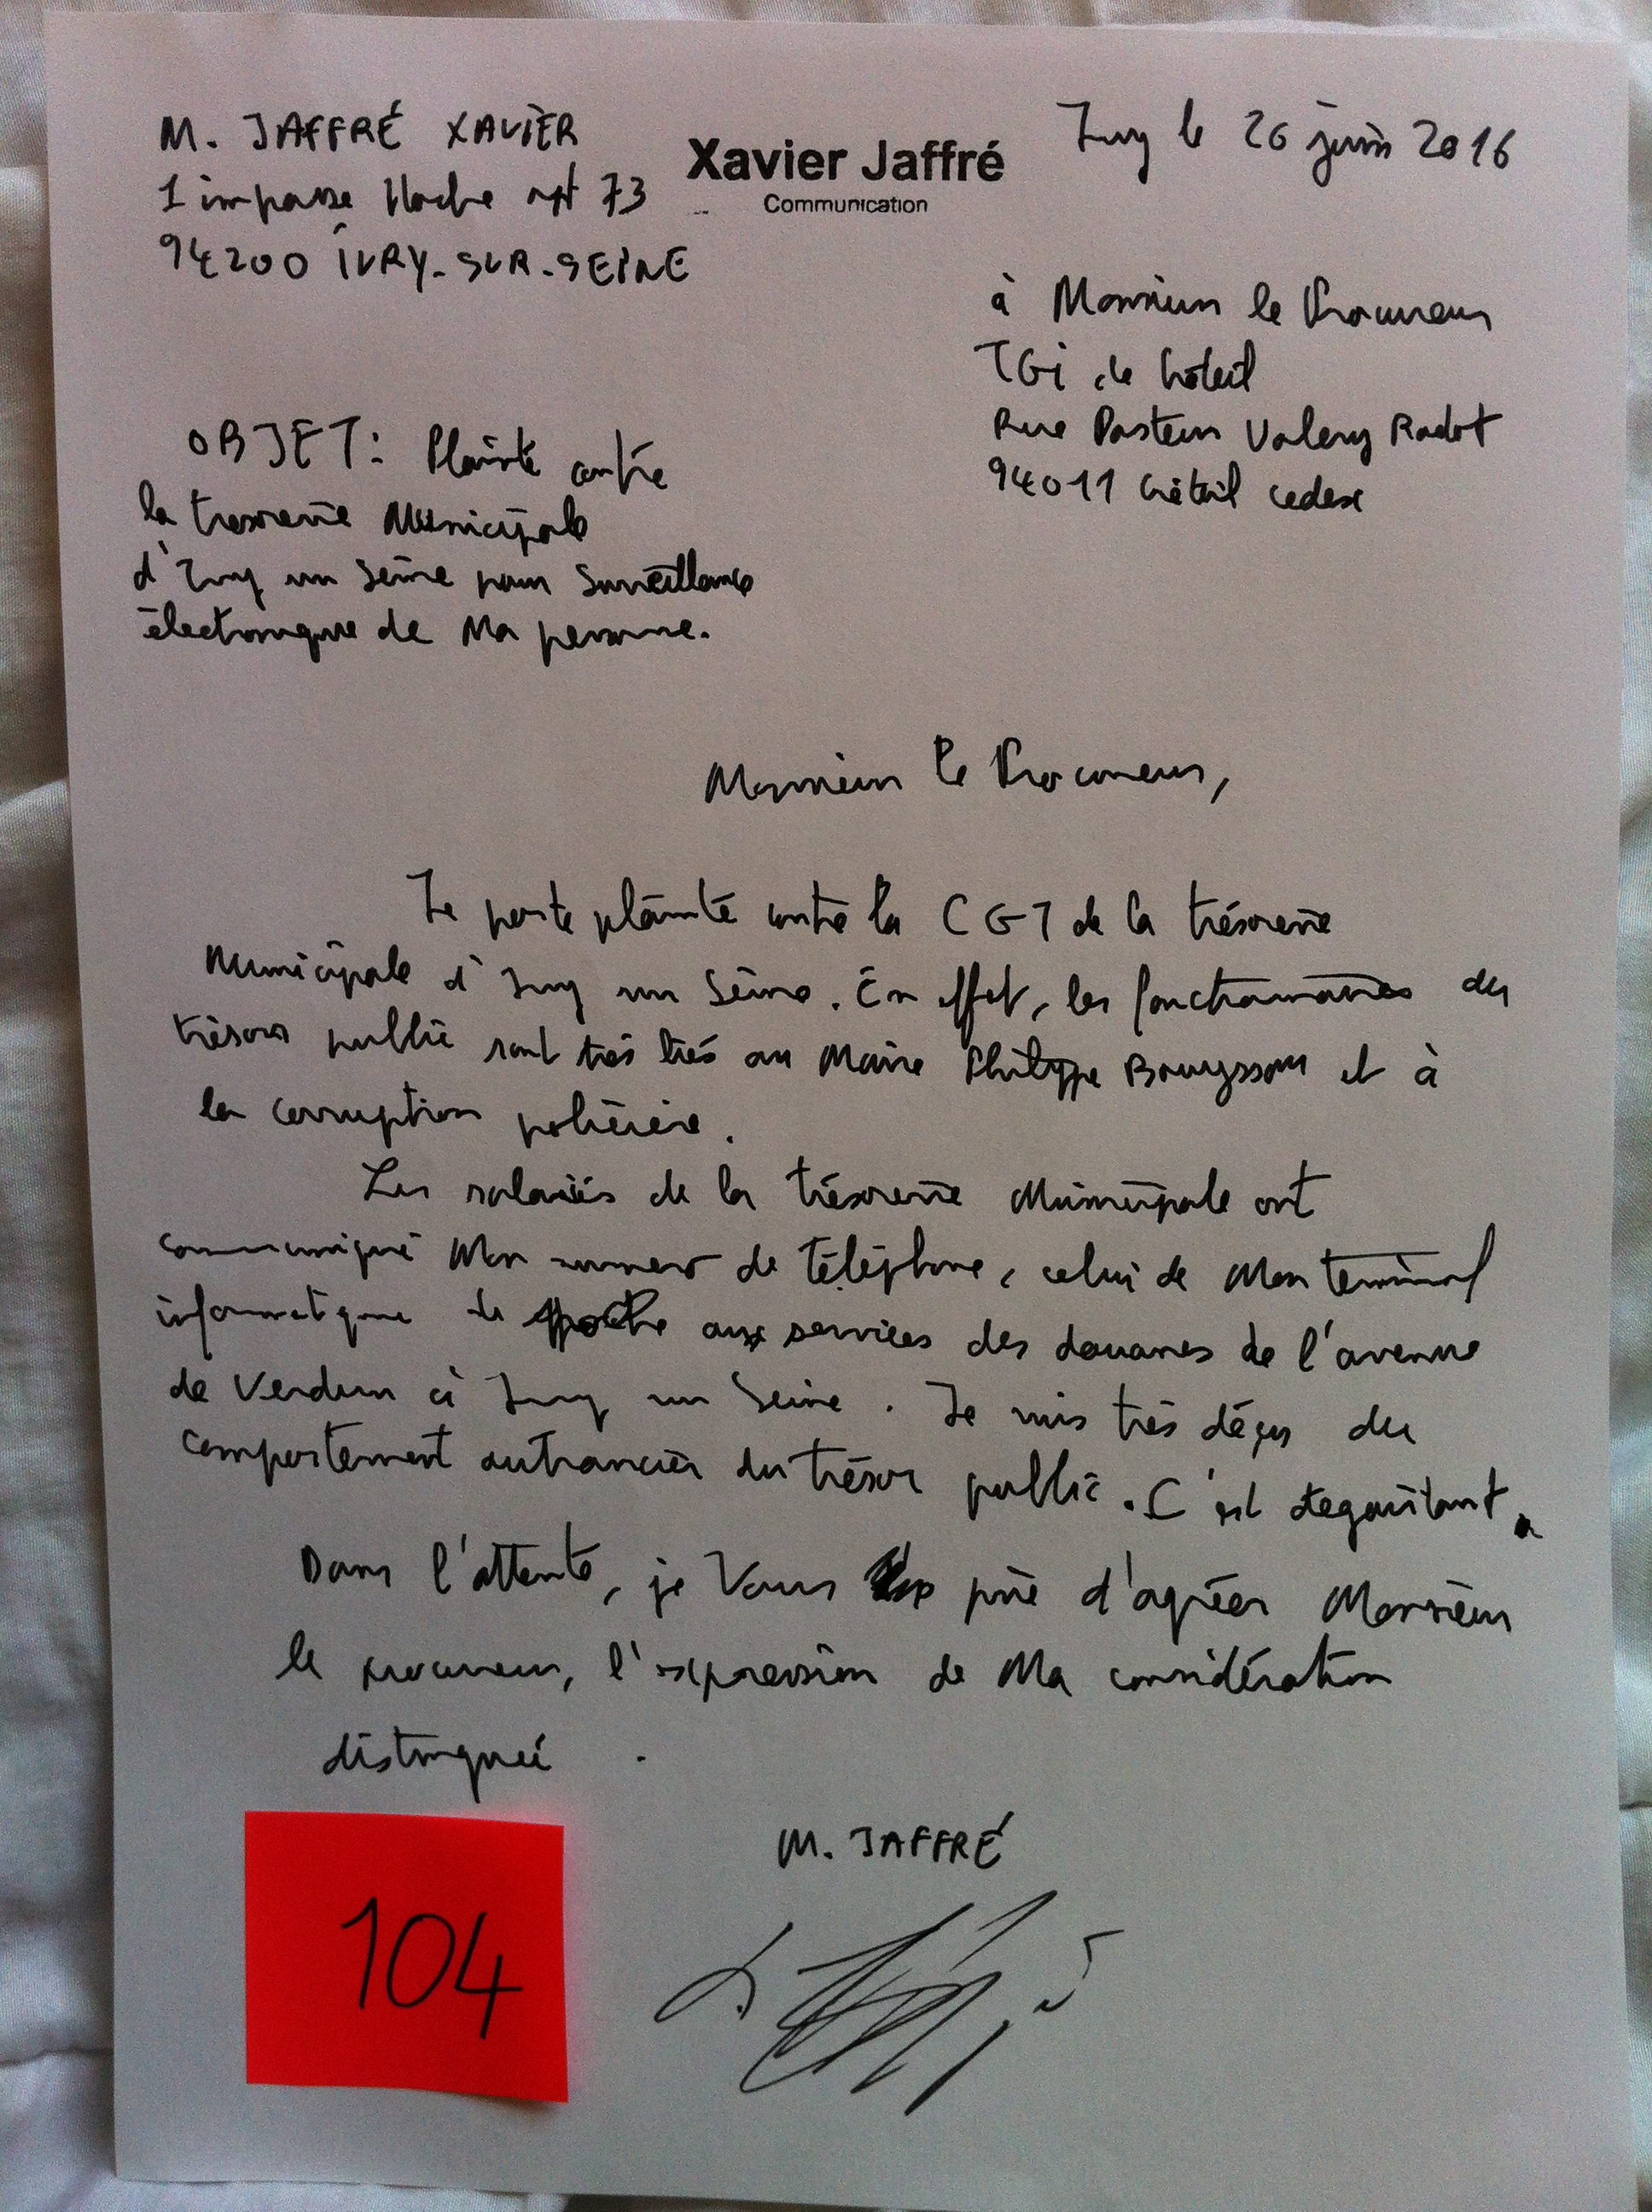 M. JAFFRÉ XAVIER
1 impasse Hoche apt 73
94200 IVRY-SUR-SEINE
Xavier Jaffré
Communication
Ivry le 26 juin 2016
à Monsieur le Procureur
TGI de Créteil
Rue Pasteur Valery Radot
94011 Créteil cedex
OBJET: Plainte contre
la tresorerie Municipale
d'Ivry sur Seine pour Surveillance
électronique de Ma personne.
Monsieur le Procureur,
Je porte plainte contre la CGT de la trésorerie
Municipale d'Ivry sur Seine. En effet, les fonctionnaires du
trésor public sont très liés au Maire Philippe Bouyssou et à
la corruption policière.
Les salariés de la trésorerie Municipale ont
communiqué Mon numero de téléphone, celui de Mon terminal
informatique de poche aux services des douanes de l'avenue
de Verdun à Ivry sur Seine. Je suis très déçu du
comportement outrancier du trésor public. C'est dégoûtant.
Dans l'attente, je Vous prie d'agréer Monsieur
le procureur, l'expression de Ma considération
distinguée.
M. JAFFRÉ
104